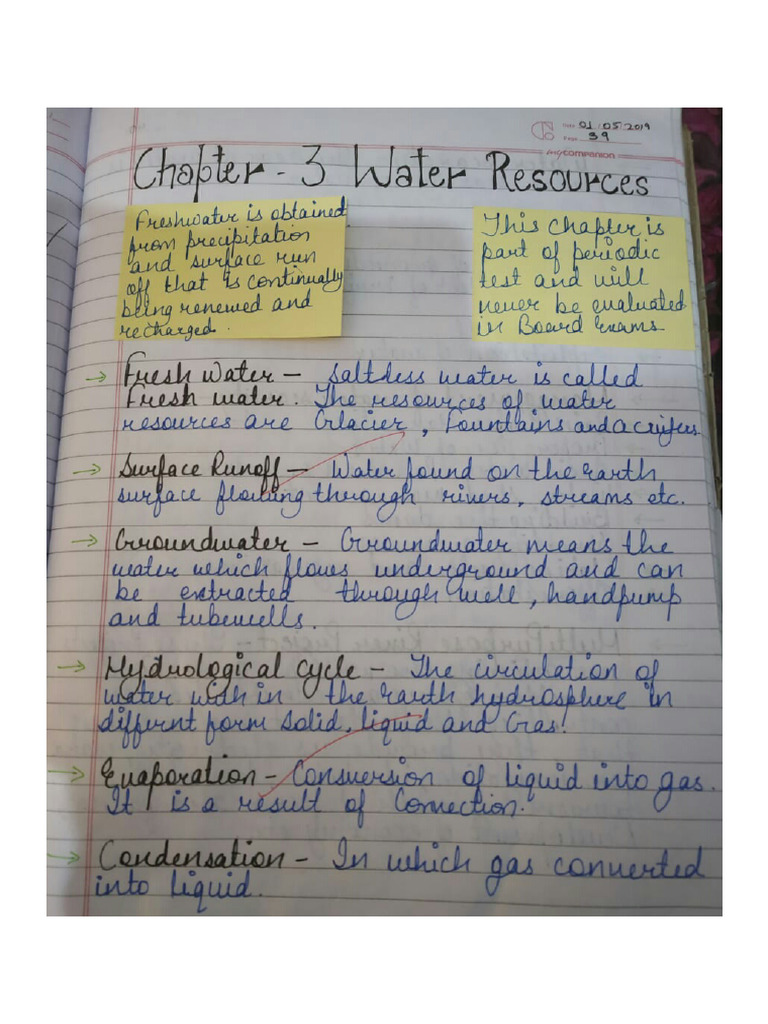 Date 01.05.2019
Page 39
mycompanion
Chapter - 3 Water Resources
Freshwater is obtained
from precipitation
and surface run
off that is continually
being renewed and
recharged.
This chapter is
part of periodic
test and will
never be evaluated
in Board Exams
→ Fresh Water – Saltless water is called
Fresh water. The resources of water
resources are Glacier, Fountains and Acuifers
→ Surface Runoff – Water found on the earth
surface flowing through rivers, streams etc.
→ Groundwater – Groundwater means the
water which flows underground and can
be extracted through well, handpump
and tubewells.
→ Hydrological cycle – The circulation of
water with in the earth hydrosphere in
differnt form solid, liquid and Gas!
→ Evaporation – Consversion of liquid into gas.
It is a result of Connection.
→ Condensation – In which gas converted
into liquid.